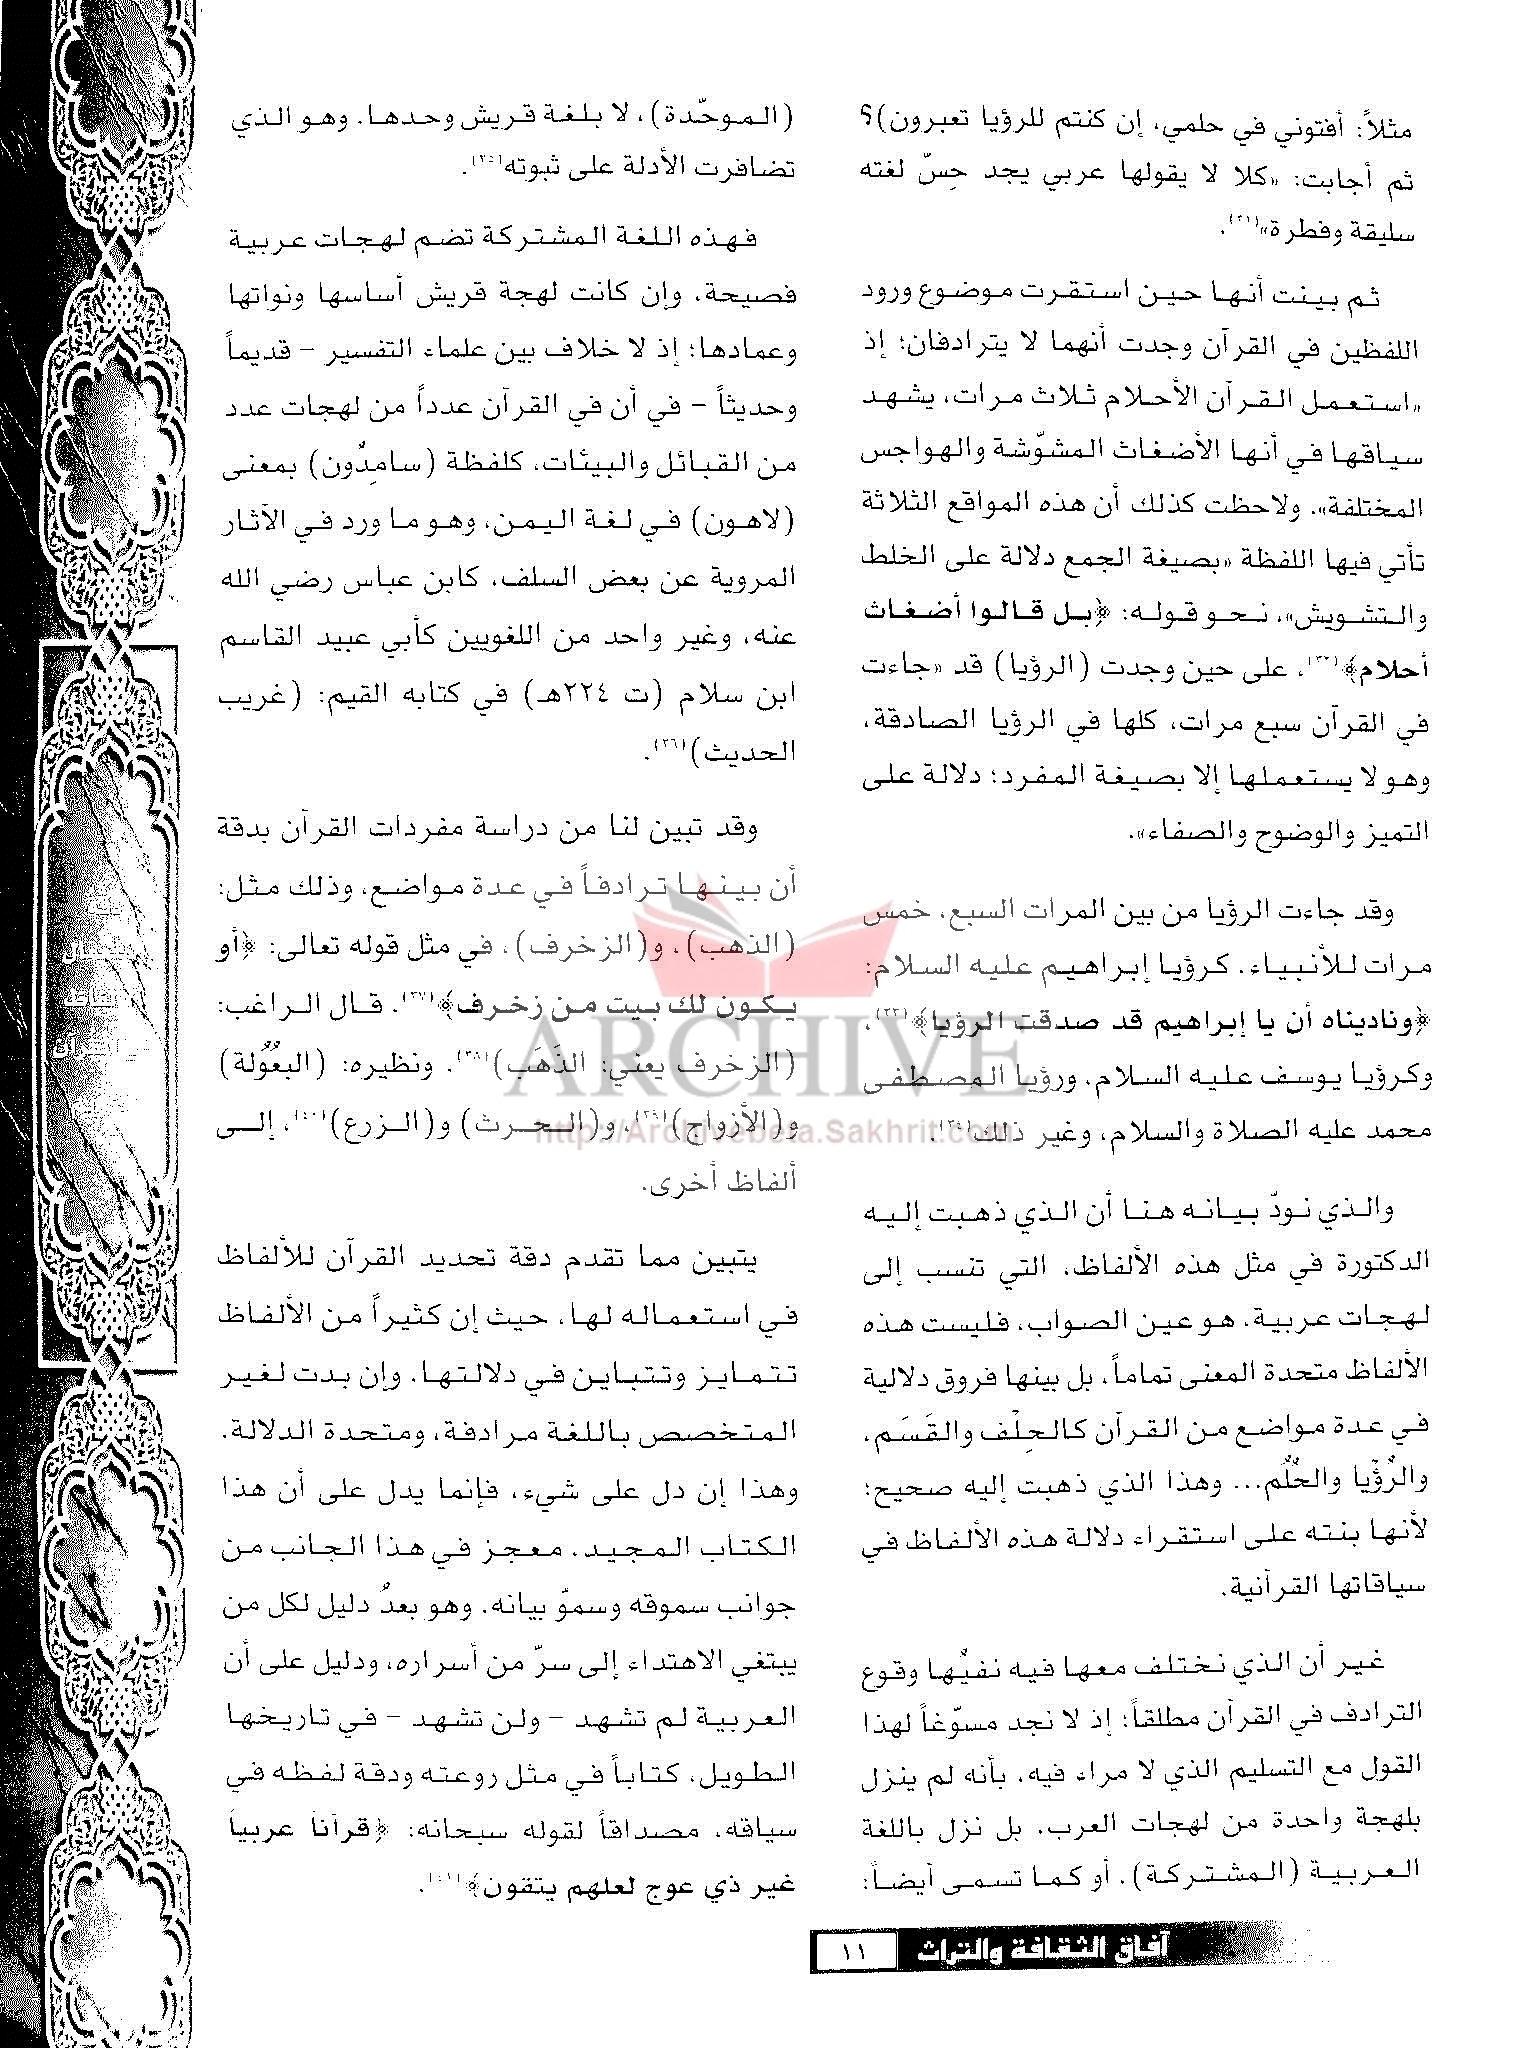 مثلاً: أفتوني في حلمي، إن كنتم للرؤيا تعبرون)؟
ثم أجابت: «كلا لا يقولها عربي يجد حِسّ لغته
سليقة وفطرة»(٣١).
ثم بينت أنها حين استقرت موضوع ورود
اللفظين في القرآن وجدت أنهما لا يترادفان؛ إذ
«استعمل القرآن الأحلام ثلاث مرات، يشهد
سياقها في أنها الأضغاث المشوّشة والهواجس
المختلفة». ولاحظت كذلك أن هذه المواقع الثلاثة
تأتي فيها اللفظة «بصيغة الجمع دلالة على الخلط
والتشويش»، نحو قوله: ﴿بل قالوا أضغاث
أحلام﴾(٣٢)، على حين وجدت (الرؤيا) قد «جاءت
في القرآن سبع مرات، كلها في الرؤيا الصادقة،
وهو لا يستعملها إلا بصيغة المفرد؛ دلالة على
التميز والوضوح والصفاء».
وقد جاءت الرؤيا من بين المرات السبع، خمس
مرات للأنبياء، كرؤيا إبراهيم عليه السلام:
﴿وناديناه أن يا إبراهيم قد صدقت الرؤيا﴾(٣٣)،
وكرؤيا يوسف عليه السلام، ورؤيا المصطفى
محمد عليه الصلاة والسلام، وغير ذلك(٣٤).
والذي نودّ بيانه هنا أن الذي ذهبت إليه
الدكتورة في مثل هذه الألفاظ، التي تنسب إلى
لهجات عربية، هو عين الصواب، فليست هذه
الألفاظ متحدة المعنى تماماً، بل بينها فروق دلالية
في عدة مواضع من القرآن كالحِلْف والقَسَم،
والرُؤْيا والحُلُم... وهذا الذي ذهبت إليه صحيح؛
لأنها بنته على استقراء دلالة هذه الألفاظ في
سياقاتها القرآنية.
غير أن الذي نختلف معها فيه نفيُها وقوع
الترادف في القرآن مطلقاً؛ إذ لا نجد مسوّغاً لهذا
القول مع التسليم الذي لا مراء فيه، بأنه لم ينزل
بلهجة واحدة من لهجات العرب، بل نزل باللغة
العربية (المشتركة)، أو كما تسمى أيضاً:
(الموحّدة)، لا بلغة قريش وحدها. وهو الذي
تضافرت الأدلة على ثبوته(٣٥).
فهذه اللغة المشتركة تضم لهجات عربية
فصيحة، وإن كانت لهجة قريش أساسها ونواتها
وعمادها؛ إذ لا خلاف بين علماء التفسير - قديماً
وحديثاً - في أن في القرآن عدداً من لهجات عدد
من القبائل والبيئات، كلفظة (سامِدُون) بمعنى
(لاهون) في لغة اليمن، وهو ما ورد في الآثار
المروية عن بعض السلف، كابن عباس رضي الله
عنه، وغير واحد من اللغويين كأبي عبيد القاسم
ابن سلام (ت ٢٢٤هـ) في كتابه القيم: (غريب
الحديث)(٣٦).
وقد تبين لنا من دراسة مفردات القرآن بدقة
أن بينها ترادفاً في عدة مواضع، وذلك مثل:
(الذهب)، و(الزخرف)، في مثل قوله تعالى: ﴿أو
يكون لك بيت من زخرف﴾(٣٧). قال الراغب:
(الزخرف يعني: الذَهَب)(٣٨). ونظيره: (البعُولة)
و(الأزواج)(٣٩)، و(الحرث) و(الزرع)(٤٠)، إلى
ألفاظ أخرى.
يتبين مما تقدم دقة تحديد القرآن للألفاظ
في استعماله لها، حيث إن كثيراً من الألفاظ
تتمايز وتتباين في دلالتها. وإن بدت لغير
المتخصص باللغة مرادفة، ومتحدة الدلالة.
وهذا إن دل على شيء، فإنما يدل على أن هذا
الكتاب المجيد، معجز في هذا الجانب من
جوانب سموقه وسموّ بيانه. وهو بعدُ دليل لكل من
يبتغي الاهتداء إلى سرّ من أسراره، ودليل على أن
العربية لم تشهد - ولن تشهد - في تاريخها
الطويل، كتاباً في مثل روعته ودقة لفظه في
سياقه، مصداقاً لقوله سبحانه: ﴿قرآناً عربياً
غير ذي عوج لعلهم يتقون﴾(٤١).
ARCHIVE
آفاق الثقافة والتراث
١١